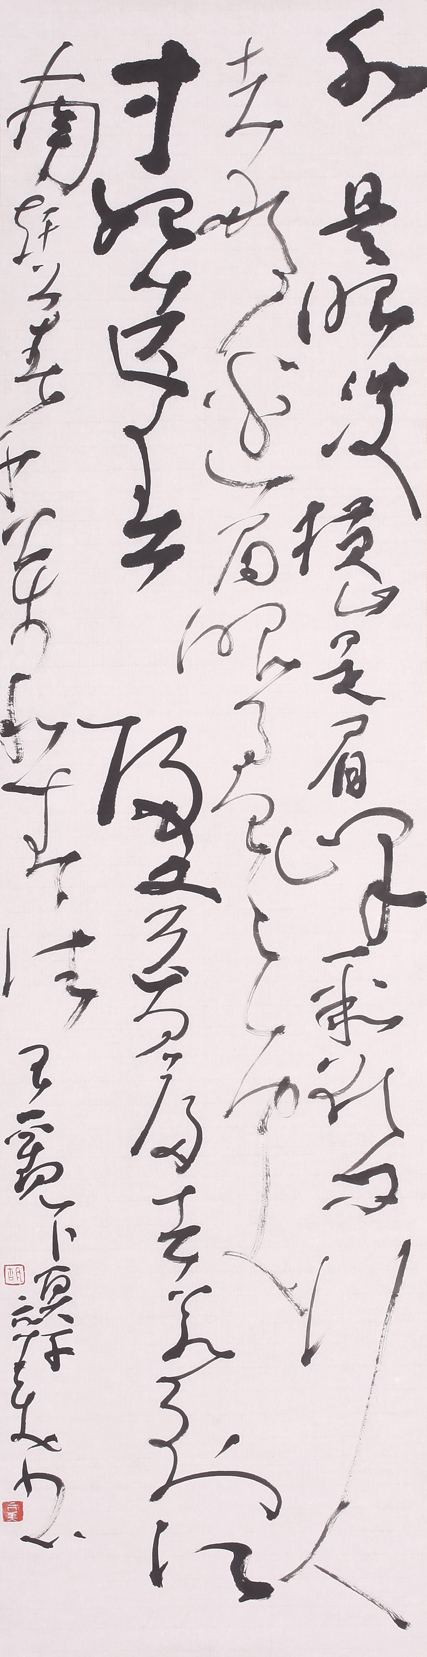 水是眼波橫山是眉峰聚欲问行人
去那边眉眼盈盈处
才始送春归又送君归去若到江
南赶上春千万和春住 王觀卜算子 书